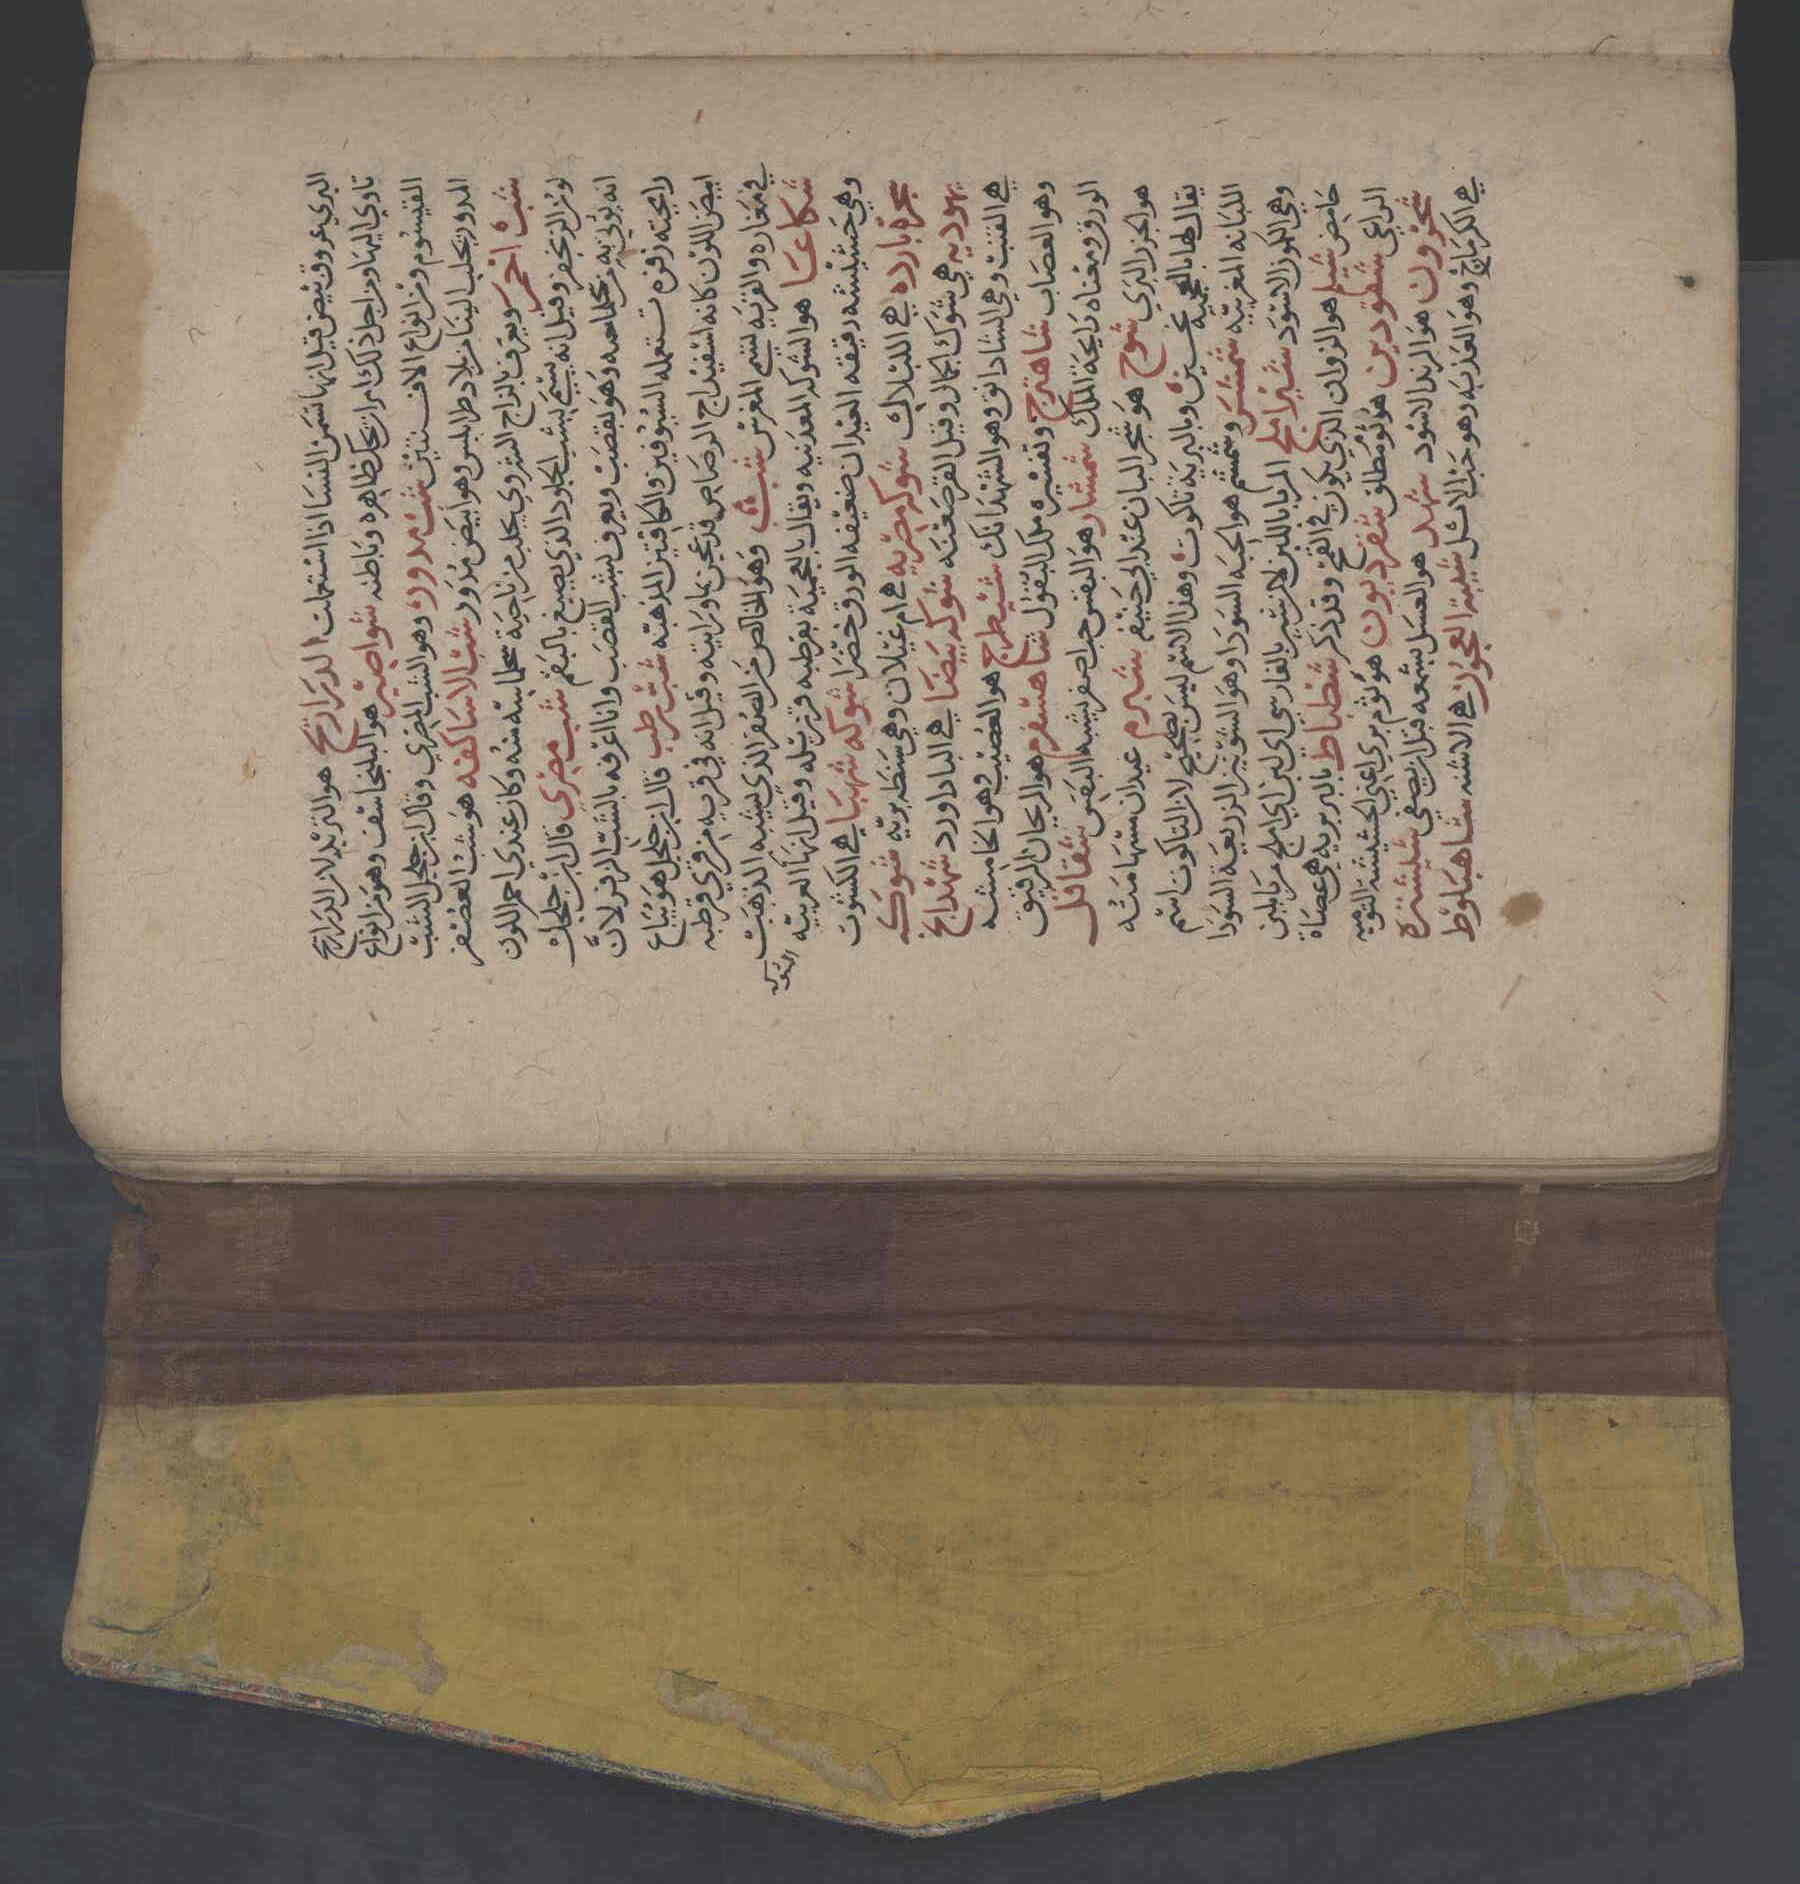 البري عروق تبيض قيل انها تسمن النسا اذا استعملت الدرارنج هو التربد لان الدرارنج
تاوي اليها ومن اجل ذلك امرت بحك ظاهره وباطنه شواصير هو البلنجاسف وهو من انواع
القيسوم ومن انواع الافسنتين شب مدور وهو الشب المضري وقال ابن جلجل الشب
المدور يجلب الينا من بلاد طرابلس وهو ابيض مدور شب الاساكفه هو شب العصفر
شب احمر ويعرف بالزاج الشروي يجلب من ناحية منه وكان عندي احمر اللون
لون الزنجفر وقيل انه يسمى شب الجلود الذي يصبغ بالبقم شب مضري قال ابن جلجل
انه يوتى به من وهو بقصب ويعرف بشب القصب وانا اعرفه بالشب الزفر لان
رايحته زفرة تستعمله السيوفيين المذهبه شب رطب قال ابن جلجل هو يباع
ابيض اللون كانه اسفيداج الرصاص قد عجن بما ورايته وقيل انه في قرية من قرى قرطبه
في مغاره والقريه تسمى المغرس شبث وهو الخالص من الصفر الذي يشبه الذهب
شكاعا هو الشوكه المعدنيه ويقال بالعجمية بقرطبه وقيل انها العربيه الشوكه
وهي حشيشه رقيقه العيدان ضعيفه الورق خضرا شوكه شهبا هي الكشوت
شجرة بارده هي اللبلاب شوكه مضريه هي ام غيلان وهي سنطه بريه شوكه
يهوديه هي شوك الجمال وقيل القرصعنه شوكه بيضا هي الباداورد شهدانج
هي القنب وهي الشادانق وهو الشهدانك شيطرج هو العصيب وهو الخامشه
وهو العصاب شاهترج وتفسيره ملك البقول شاهسفرم هو الريحان الرقيق
الورق ومعناه رايحة الملك شمشار هو البقس حب اصفر يشبه البقس شقاقل
هو الجزر البري شوح هو شجر البان عند ابي حنيفه شبرم عيدان
يقال لها بالعجمية وبالبرية تاكوت وهذا الاسم ليس بصحيح لان التاكوت اسم
اللبانه المغربيه وشمشم هو الحبه السودا وهو الشونيز الزريعة السودا
وهي الكمون الاسود شيراملج المربا باللبن لان شير بالفارسي اي لبن اي املج مربا بلبن
حامض شيلم هو الزوان الذي يكون في القمح وقد ذكر شطباط بالبربريه هي عصاة
الراعي شفودين هو ثوم مطلق شقرديون هو ثوم بري اعني الحشيشة الثوميه
شجرون هو الرند الاسود شهد هو العسل بشمعه قبل ان يصفى شيشتره
هي الكرماج وهو العذبه وهو حب الاثل شيبة العجوز هي الاشنه شاهبلوط